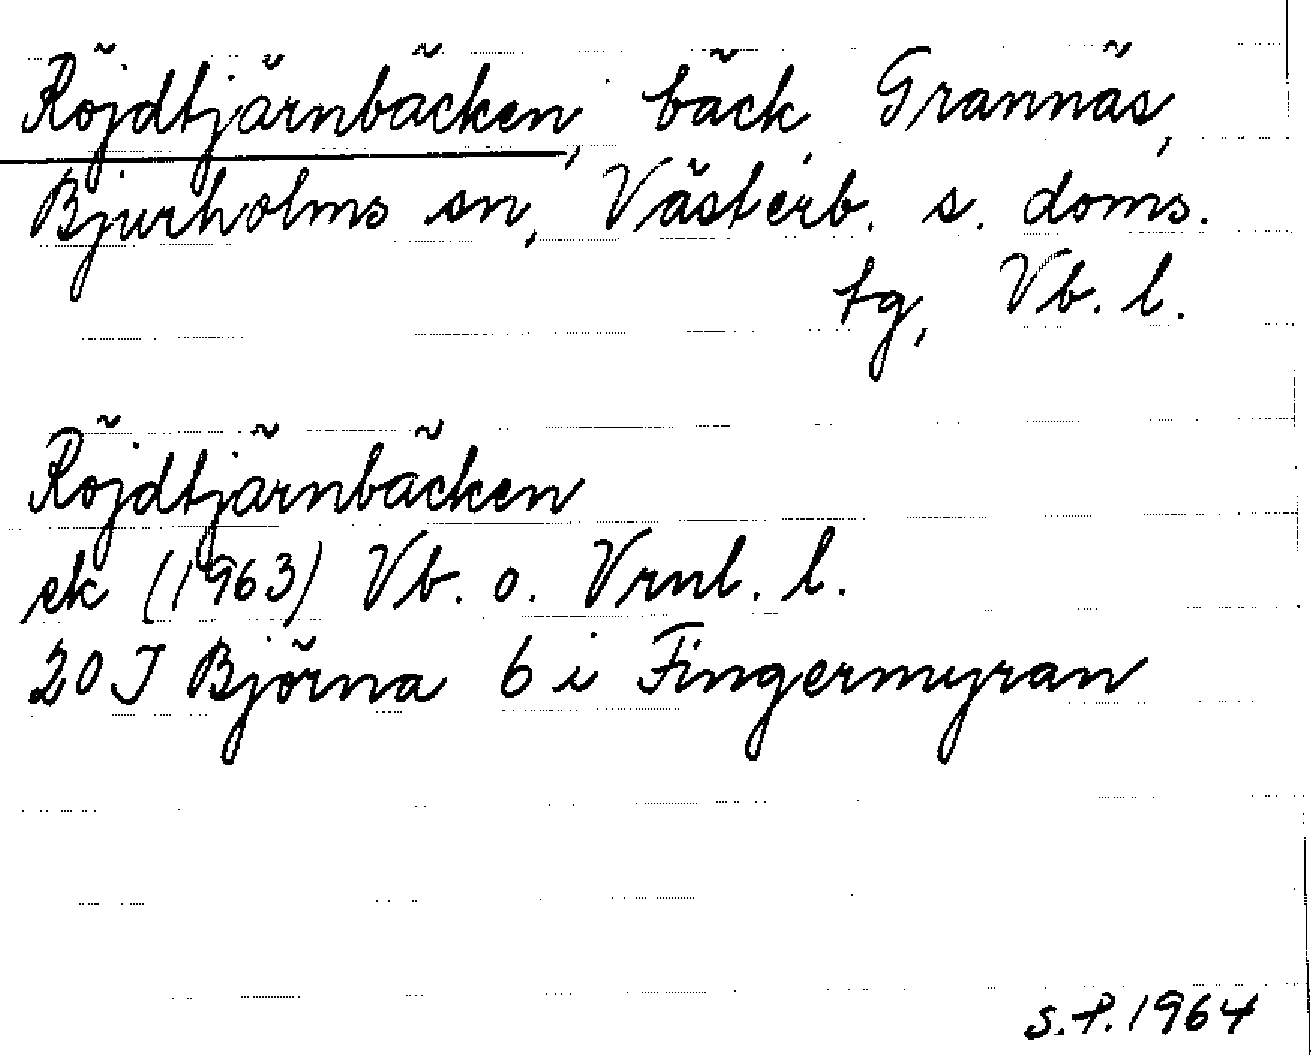 Röjdtjärnbäcken, bäck, Grannäs,
Bjurholms sn, Västerb. s. doms.
tg, Vb. l.
Röjdtjärnbäcken
ek (1963) Vb. o. Vrnl. l.
20 J Björna 6 i Fingermyran
S.P. 1964